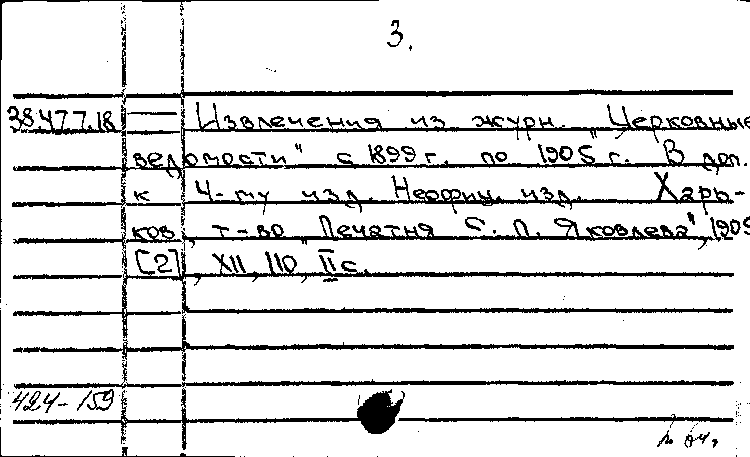 3.
38.477.18 — Извлечения из журн. „Церковные
ведомости" с 1899 г. по 1905 г. В доп.
к 4-му изд. Неофиц. изд. Харь-
ков, т-во „Печатня С. П. Яковлева", 1905
[2], XII, 110, II с.
424-159